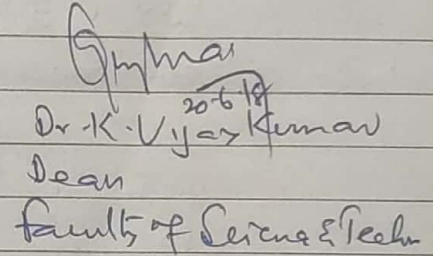 20-6-18
Dr. K. Vijay Kumar
Dean
Faculty of Science & Techn